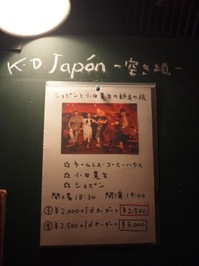 K・D Japón -空き地-
ショピンと小田晃生の師走の旅
☆ ネームレス・コーヒーハウス
☆ 小田晃生
☆ ショピン
開場 18:30 開演 19:00
¥2,000+1dオーダー ¥2,500
¥2,500+1dオーダー ¥3,000